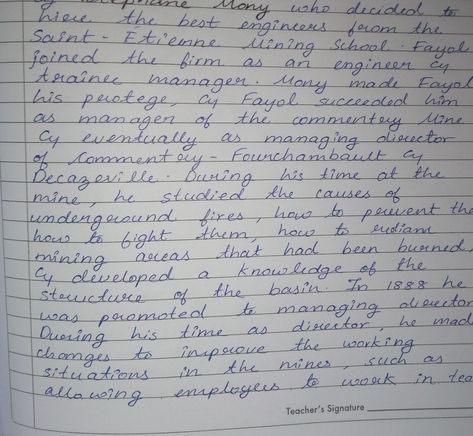 by Stephane Mony who decided to
hire the best engineers from the
Saint - Etienne Mining School. Fayol
joined the firm as an engineer &
trainee manager. Mony made Fayol
his protege, & Fayol succeeded him
as manager of the commentry Mine
& eventually as managing director
of Commentry - Fourchambault &
Decazeville. During his time at the
mine, he studied the causes of
underground fires, how to prevent th
how to fight them, how to
mining areas that had been burned
& developed a knowledge of the
structure of the basin. In 1888 he
was promoted to managing director
During his time as director, he mad
changes to improve the working
situations in the mines, such as
allowing employees to work in tea
Teacher's Signature